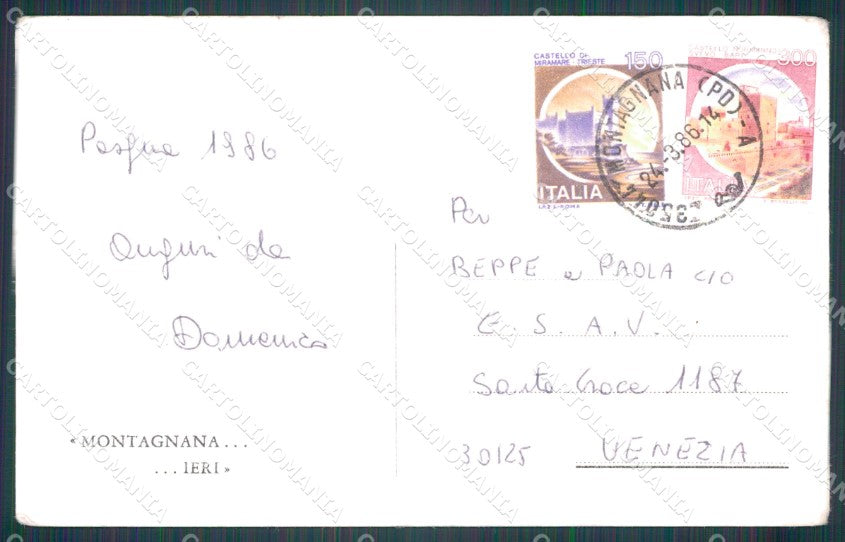 Pasqua 1986
Auguri da
Domenico
« MONTAGNANA...
...IERI »
CASTELLO DI
MIRAMARE TRIESTE
150
ITALIA
300
ITALIA
MONTAGNANA (PD) - A
24.-3.86.14
Per
BEPPE e PAOLA c/o
S. A. V.
Santa Croce 1187
30125 VENEZIA
CARTOLINOMANIA